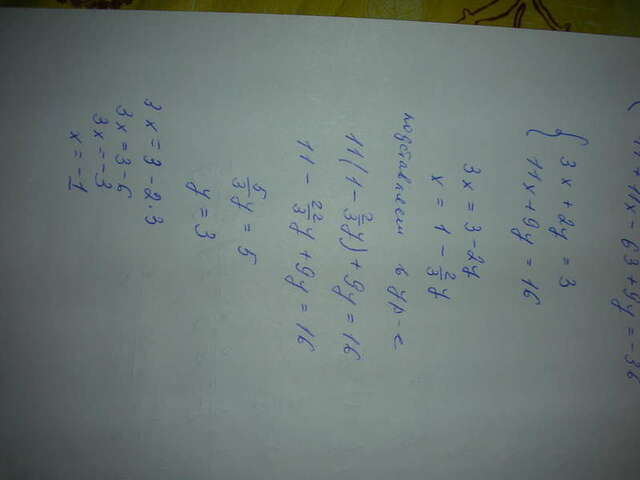 11 + 11x - 63 + 9y = -36
{ 3x + 2y = 3
11x + 9y = 16
3x = 3 - 2y
x = 1 - 2/3 y
подставляем в ур-е
11(1 - 2/3 y) + 9y = 16
11 - 22/3 y + 9y = 16
5/3 y = 5
y = 3
3x = 3 - 2·3
3x = 3 - 6
3x = -3
x = -1